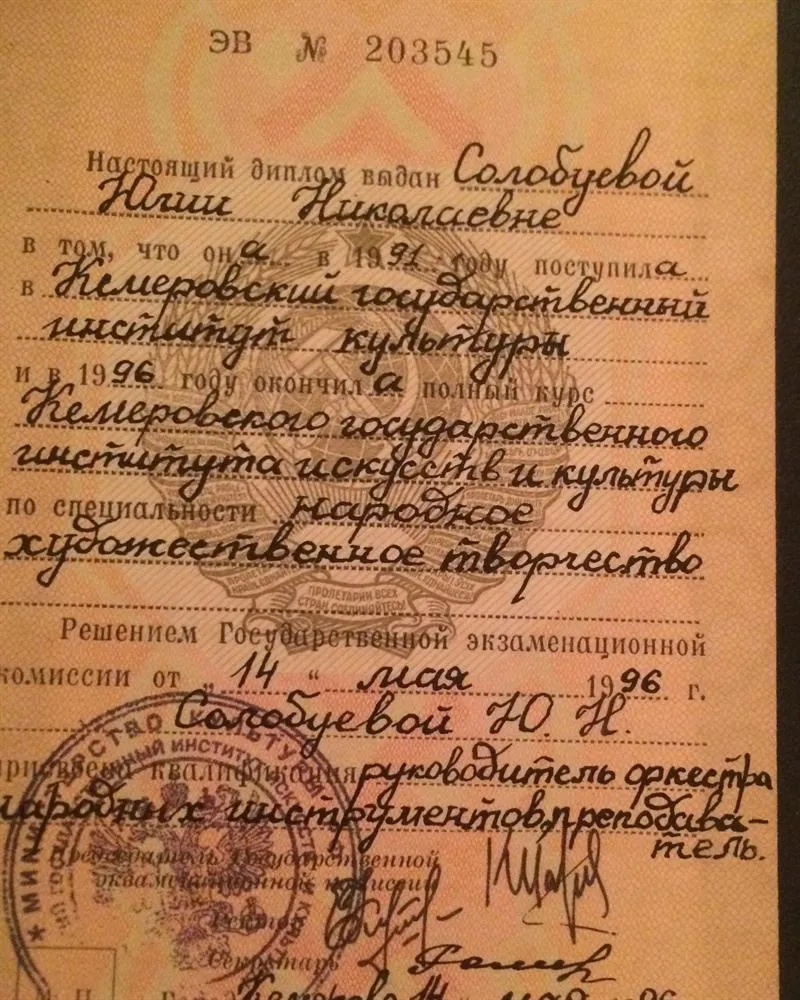 ЭВ № 203545
Настоящий диплом выдан Солобуевой
Юлии Николаевне
в том, что она в 1991 году поступила
в Кемеровский государственный
институт культуры
и в 1996 году окончила полный курс
Кемеровского государственного
института искусств и культуры
по специальности народное
художественное творчество
ПРОЛЕТАРИИ ВСЕХ
СТРАН СОЕДИНЯЙТЕСЬ!
Решением Государственной экзаменационной
комиссии от „14“ мая 1996 г.
Солобуевой Ю. Н.
присвоена квалификация руководитель оркестра
народных инструментов, преподава-
тель.
Председатель Государственной
экзаменационной комиссии
Ректор
Секретарь
Город Кемерово 14 мая 96